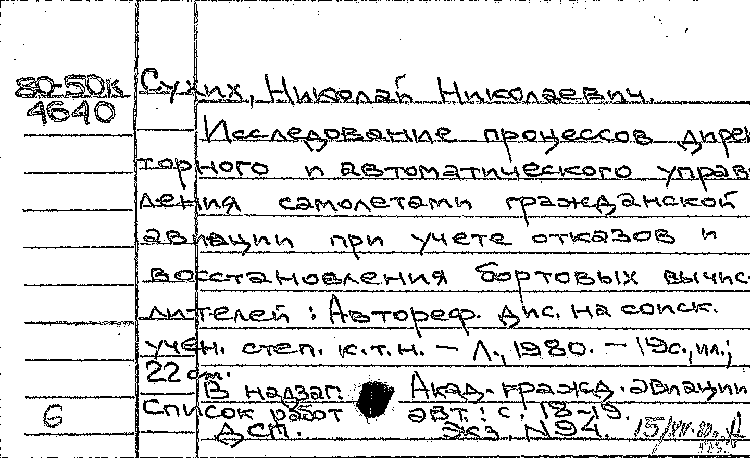 80-50к Сухих, Николай Николаевич.
4640
Исследование процессов дирек
торного и автоматического управ
ления самолетами гражданской
авиации при учете отказов и
восстановления бортовых вычис-
лителей : Автореф. дис. на соиск.
учен. степ. к.т.н. — Л., 1980. — 19с., ил.;
22 см.
В надзаг. Акад. гражд. авиации
Список работ авт.: с. 18-19.
6 ДСП. Экз. N94. 15/